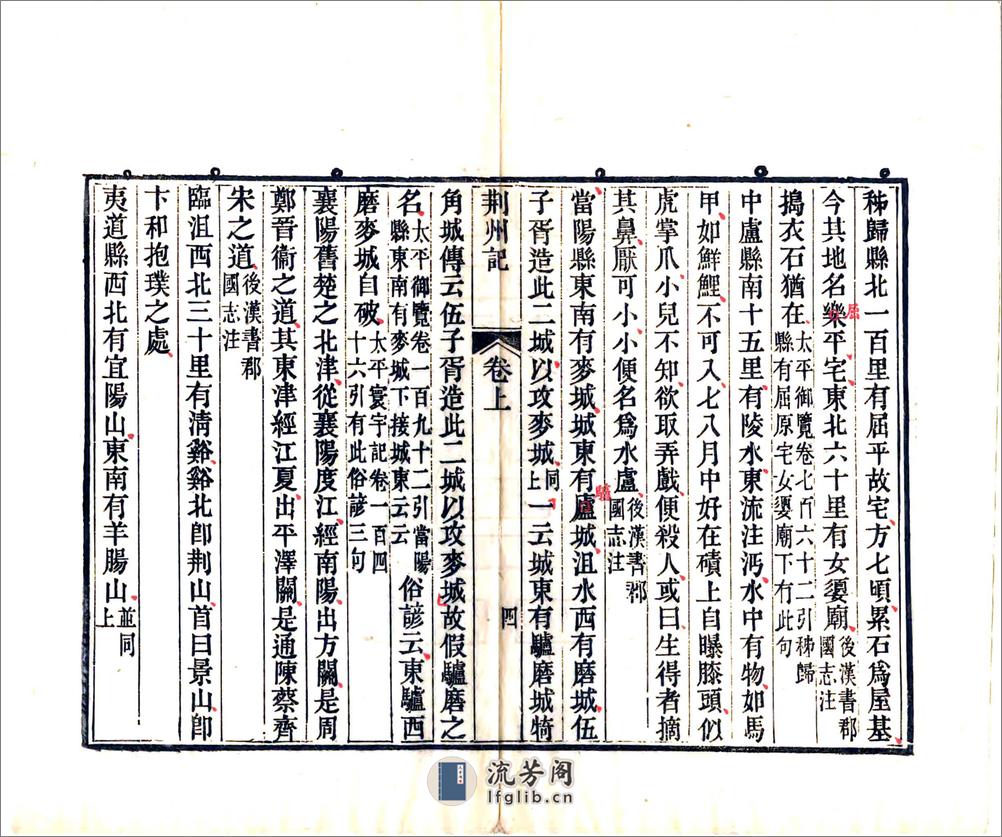 秭歸縣北一百里有屈平故宅方七頃累石爲屋基
今其地名樂平宅東北六十里有女嬃廟後漢書郡國志注
搗衣石猶在太平御覽卷七百六十二引秭歸縣有屈原宅女嬃廟下有此句
中盧縣南十五里有陵水東流注沔水中有物如馬
甲如鮮鯉不可入七八月中好在磧上自曝膝頭似
虎掌爪小兒不知欲取弄戲便殺人或曰生得者摘
其鼻厭可小小便名爲水盧後漢書郡國志注
當陽縣東南有麥城城東有廬城沮水西有磨城伍
子胥造此二城以攻麥城同上一云城東有驢磨城犄
荆州記
卷上
四
角城傳云伍子胥造此二城以攻麥城故假驢磨之
名太平御覽卷一百九十二引當陽縣東南有麥城下接城東云云俗諺云東驢西
磨麥城自破太平寰宇記卷一百四十六引有此俗諺三句
襄陽舊楚之北津從襄陽度江經南陽出方關是周
鄭晉衞之道其東津經江夏出平澤關是通陳蔡齊
宋之道後漢書郡國志注
臨沮西北三十里有清谿谿北卽荆山首曰景山卽
卞和抱璞之處
夷道縣西北有宜陽山東南有羊腸山並同上
屈
驢
流芳阁
lfglib.cn